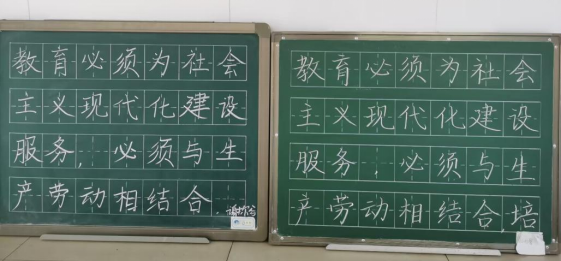 教育必须为社会
主义现代化建设
服务,必须与生
产劳动相结合.
教育必须为社会
主义现代化建设
服务,必须与生
产劳动相结合,培